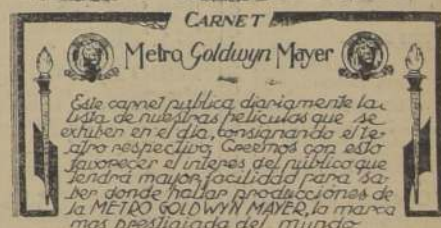 CARNET
Metro Goldwyn Mayer
Este carnet publica diariamente la
lista de nuestras películas que se
exhiben en el día, consignando el te-
atro respectivo; Creemos con esto
favorecer el interes del público que
tendrá mayor facilidad para sa-
ber donde hallar producciones de
la METRO GOLDWYN MAYER, la marca
mas prestigiada del mundo